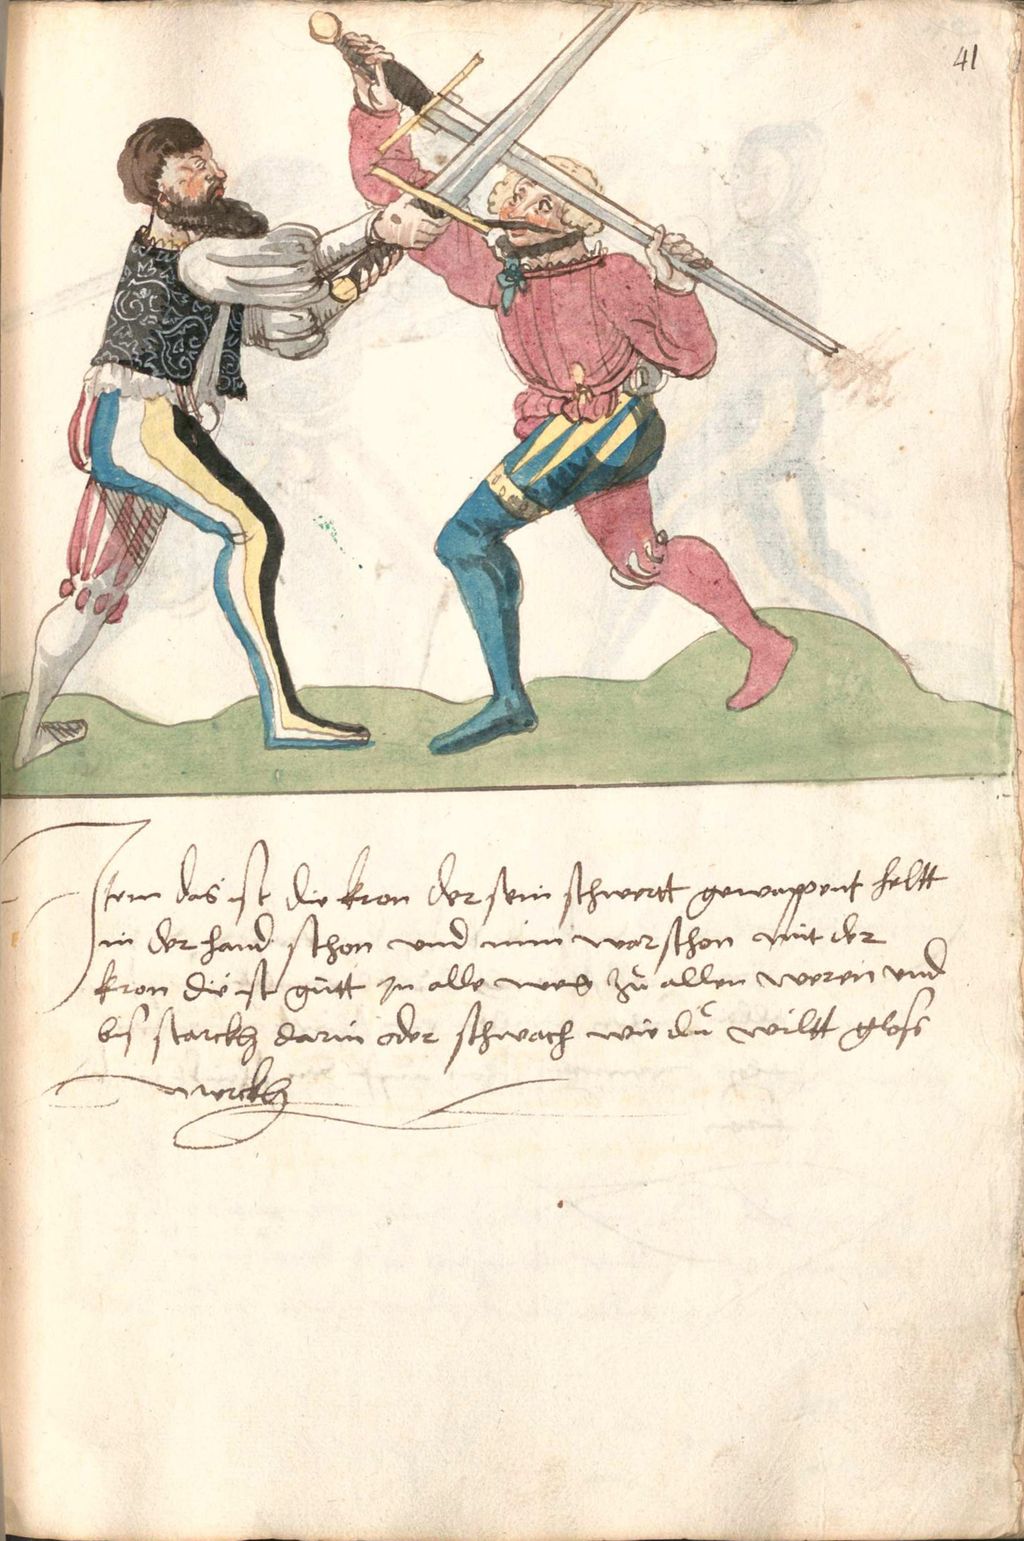 41
Item das ist die kron der sein schwertt gewappent heltt
in der hand schon und nim war schon mit der
kron die ist gutt in alle weg zů allen weren und
bis starckh darin oder schwach wie dů wiltt gloss
merckh